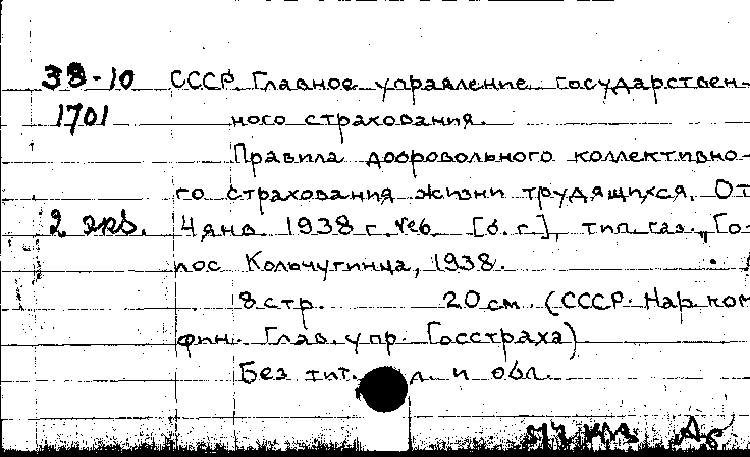 38-10 СССР. Главное управление государствен-
1701 ного страхования.
Правила добровольного коллективно-
го страхования жизни трудящихся. От
2 экз. 4 янв. 1938 г. №6. [б. г.], тип. газ. „Го-
лос Кольчугинца, 1938.
8 стр. 20 см. (СССР. Нар. ком.
фин. Глав. упр. Госстраха)
Без тит. л. и обл.